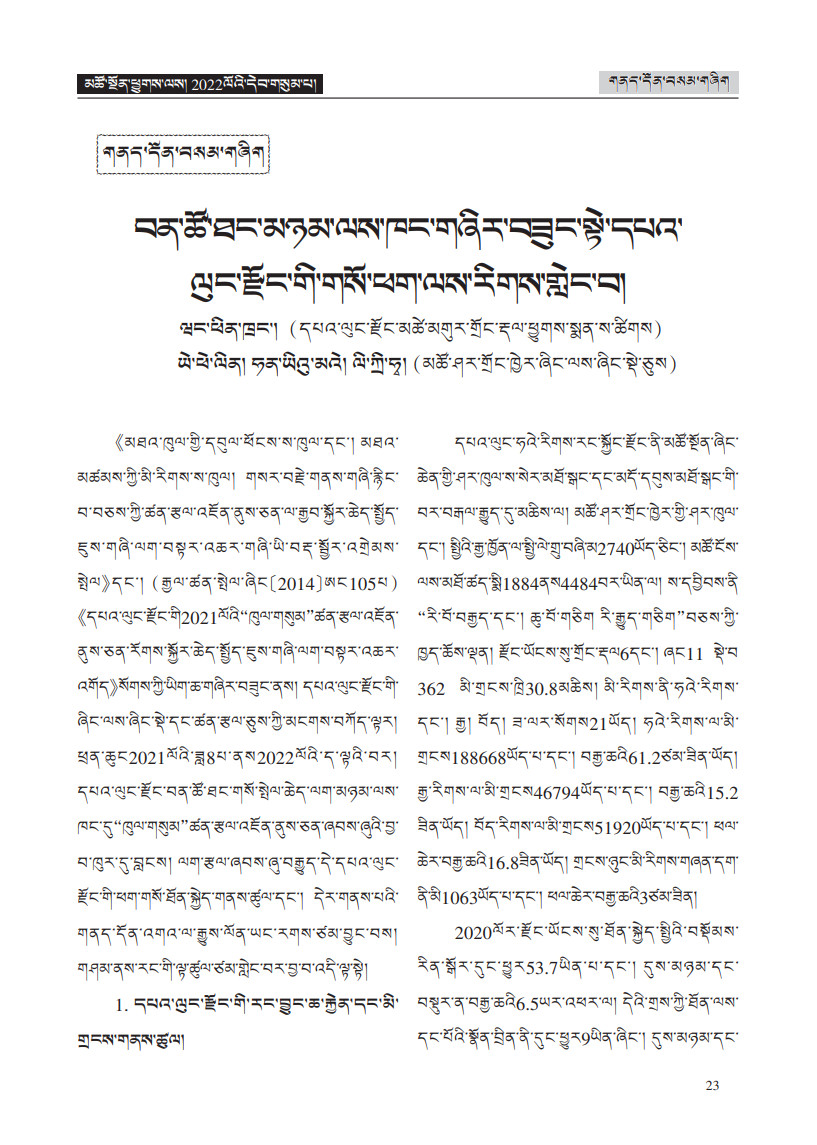 མཚོ་སྔོན་ཕྱུགས་ལས། 2022ལོའི་དེབ་གསུམ་པ།
གནད་དོན་བསམ་གཞིག
གནད་དོན་བསམ་གཞིག
བན་ཚོ་ཐང་མ་ཉམ་ལས་ཁང་གཞིར་བཟུང་སྟེ་དཔའ་
ལུང་རྫོང་གི་གསོ་ཕག་ལས་རིགས་གླེང་བ།
ཝང་ཕིན་ཁྲང་། (དཔའ་ལུང་རྫོང་མཚེ་མགུར་གྲོང་རྡལ་ཕྱུགས་སྨན་ས་ཚིགས)
ཡེ་ཕེ་ལིན། ཧན་ཡིའུ་མའེ། ལི་ཀྲི་ཧྭ། (མཚོ་ཤར་གྲོང་ཁྱེར་ཞིང་ལས་ཞིང་སྡེ་ཅུས)
《མཐའ་ཁུལ་གྱི་དབུལ་ཕོངས་ས་ཁུལ་དང་། མཐའ་
མཚམས་ཀྱི་མི་རིགས་ས་ཁུལ། གསར་བརྗེ་གནས་གཞི་རྙིང་
བ་བཅས་ཀྱི་ཚན་རྩལ་འཇོན་ནུས་ཅན་ལ་རྒྱབ་སྐྱོར་ཆེད་སྤྱོད་
དངུས་གཞི་ལག་བསྟར་འཆར་གཞི་ཡི་བརྡ་སྦྱོར་འགྲེམས་
སྤེལ》དང་། (རྒྱལ་ཚན་སྤེལ་ཞིང〔2014〕ཨང105པ)
《དཔའ་ལུང་རྫོང་གི2021ལོའི“ཁུལ་གསུམ”ཚན་རྩལ་འཇོན་
ནུས་ཅན་རོགས་སྐྱོར་ཆེད་སྤྱོད་དངུས་གཞི་ལག་བསྟར་འཆར་
འགོད》སོགས་ཀྱི་ཡིག་ཆ་གཞིར་བཟུང་ནས། དཔའ་ལུང་རྫོང་གི་
ཞིང་ལས་ཞིང་སྡེ་དང་ཚན་རྩལ་ཅུས་ཀྱི་མངགས་བཀོད་ལྟར།
ཕྲན་ཆུང2021ལོའི་ཟླ8པ་ནས2022ལོའི་ད་ལྟའི་བར།
དཔའ་ལུང་རྫོང་བན་ཚོ་ཐང་གསོ་སྤེལ་ཆེད་ལག་མཉམ་ལས་
ཁང་དུ“ཁུལ་གསུམ”ཚན་རྩལ་འཇོན་ནུས་ཅན་ཞབས་ཞུའི་བྱ་
བ་ཁུར་དུ་བླངས། ལག་རྩལ་ཞབས་ཞུ་བརྒྱུད་དེ་དཔའ་ལུང་
རྫོང་གི་ཕག་གསོ་ཐོན་སྐྱེད་གནས་ཚུལ་དང་། དེར་གནས་པའི་
གནད་དོན་འགའ་ལ་རྒྱུས་ལོན་ཡང་རགས་ཙམ་བྱུང་བས།
གཤམ་ནས་རང་གི་ལྟ་ཚུལ་ཙམ་གླེང་བར་བྱ་བ་འདི་ལྟ་སྟེ།
1. དཔའ་ལུང་རྫོང་གི་རང་བྱུང་ཆ་རྐྱེན་དང་མི་
གྲངས་གནས་ཚུལ།
དཔའ་ལུང་ཧའེ་རིགས་རང་སྐྱོང་རྫོང་ནི་མཚོ་སྔོན་ཞིང་
ཆེན་གྱི་ཤར་ཁུལ་ས་སེར་མཐོ་སྒང་དང་མདོ་དབུས་མཐོ་སྒང་གི་
བར་བརྒལ་རྒྱུད་དུ་མཆིས་ལ། མཚོ་ཤར་གྲོང་ཁྱེར་གྱི་ཤར་ཁུལ་
དང་། སྤྱིའི་རྒྱ་ཁྱོན་ལ་སྤྱི་ལེ་གྲུ་བཞི་མ2740ཡོད་ཅིང་། མཚོ་ངོས་
ལས་མཐོ་ཚད་སྨི1884ནས4484བར་ཡིན་ལ། ས་དབྱིབས་ནི
“རི་བོ་བརྒྱད་དང་། ཆུ་བོ་གཅིག རི་རྒྱུད་གཅིག”བཅས་ཀྱི་
ཁྱད་ཆོས་ལྡན། རྫོང་ཡོངས་སུ་གྲོང་རྡལ6དང་། ཞང11 སྡེ་བ
362 མི་གྲངས་ཁྲི30.8མཆིས། མི་རིགས་ནི་ཧའེ་རིགས་
དང་། རྒྱ། བོད། ཟ་ལར་སོགས21ཡོད། ཧའེ་རིགས་ལ་མི་
གྲངས188668ཡོད་པ་དང་། བརྒྱ་ཆའི61.2ཙམ་ཟིན་ཡོད།
རྒྱ་རིགས་ལ་མི་གྲངས46794ཡོད་པ་དང་། བརྒྱ་ཆའི15.2
ཟིན་ཡོད། བོད་རིགས་ལ་མི་གྲངས51920ཡོད་པ་དང་། ཕལ་
ཆེར་བརྒྱ་ཆའི16.8ཟིན་ཡོད། གྲངས་ཉུང་མི་རིགས་གཞན་དག་
ནི་མི1063ཡོད་པ་དང་། ཕལ་ཆེར་བརྒྱ་ཆའི3ཙམ་ཟིན།
2020ལོར་རྫོང་ཡོངས་སུ་ཐོན་སྐྱེད་སྤྱིའི་བསྡོམས་
རིན་སྒོར་དུང་ཕྱུར53.7ཡིན་པ་དང་། དུས་མཉམ་དང་
བསྡུར་ན་བརྒྱ་ཆའི6.5ཡར་འཕར་ལ། དེའི་གྲས་ཀྱི་ཐོན་ལས་
དང་པོའི་སྣོན་བྲིན་ནི་དུང་ཕྱུར9ཡིན་ཞིང་། དུས་མཉམ་དང་
23